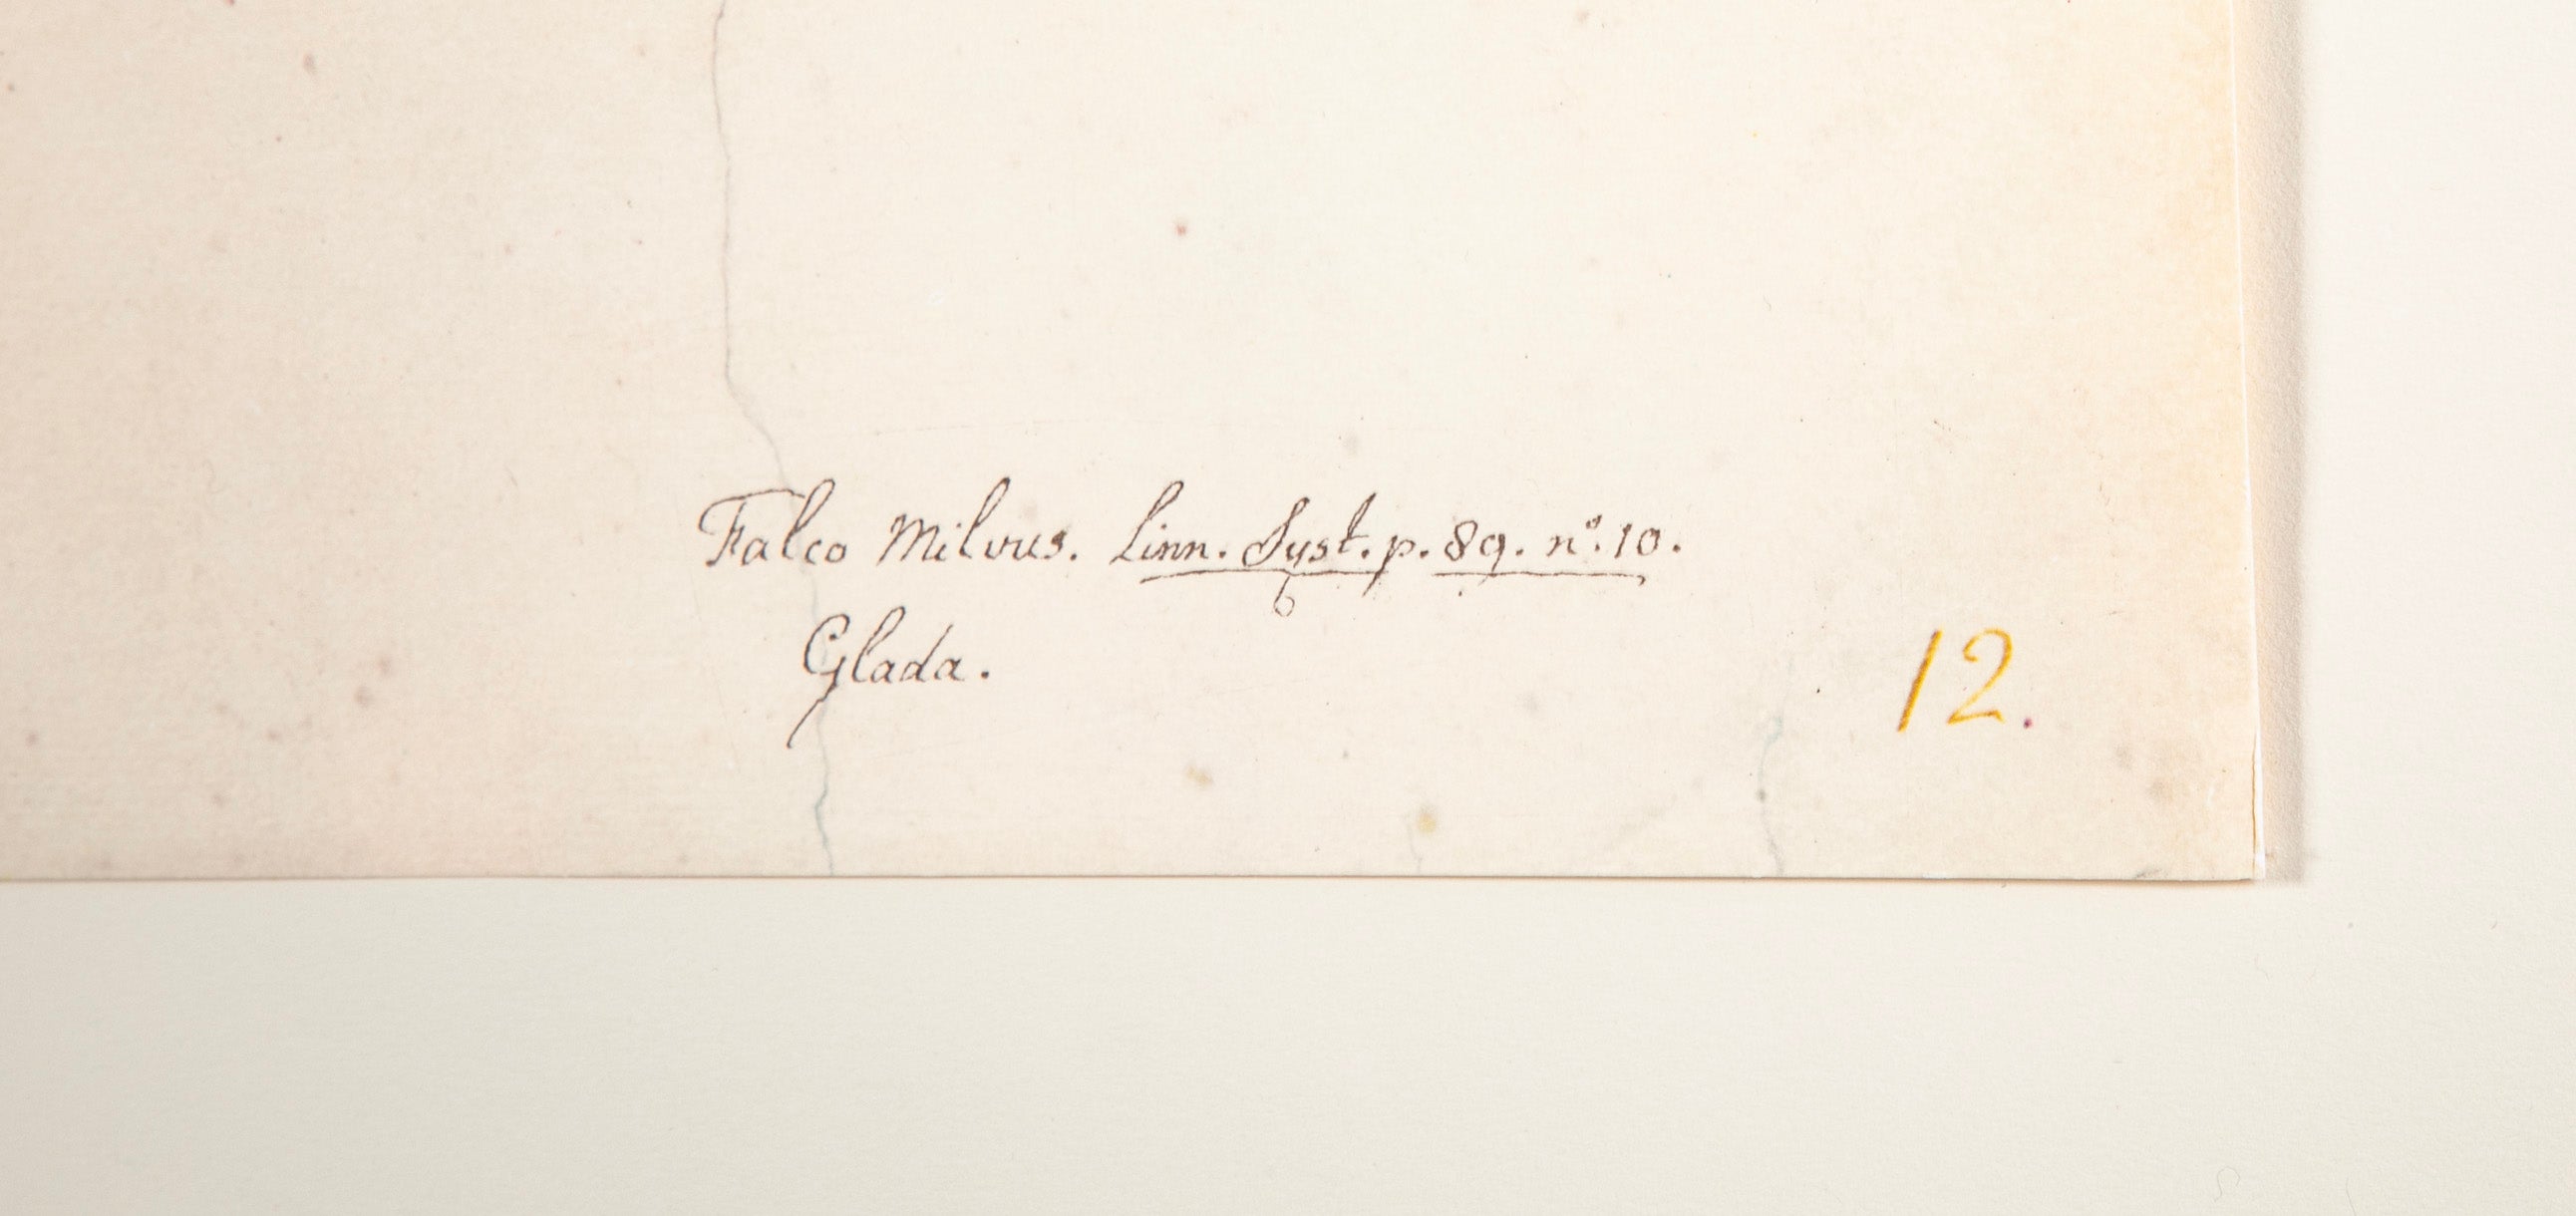 Falco Milvus. Linn. Syst. p. 89. no. 10.
Glada.
12.